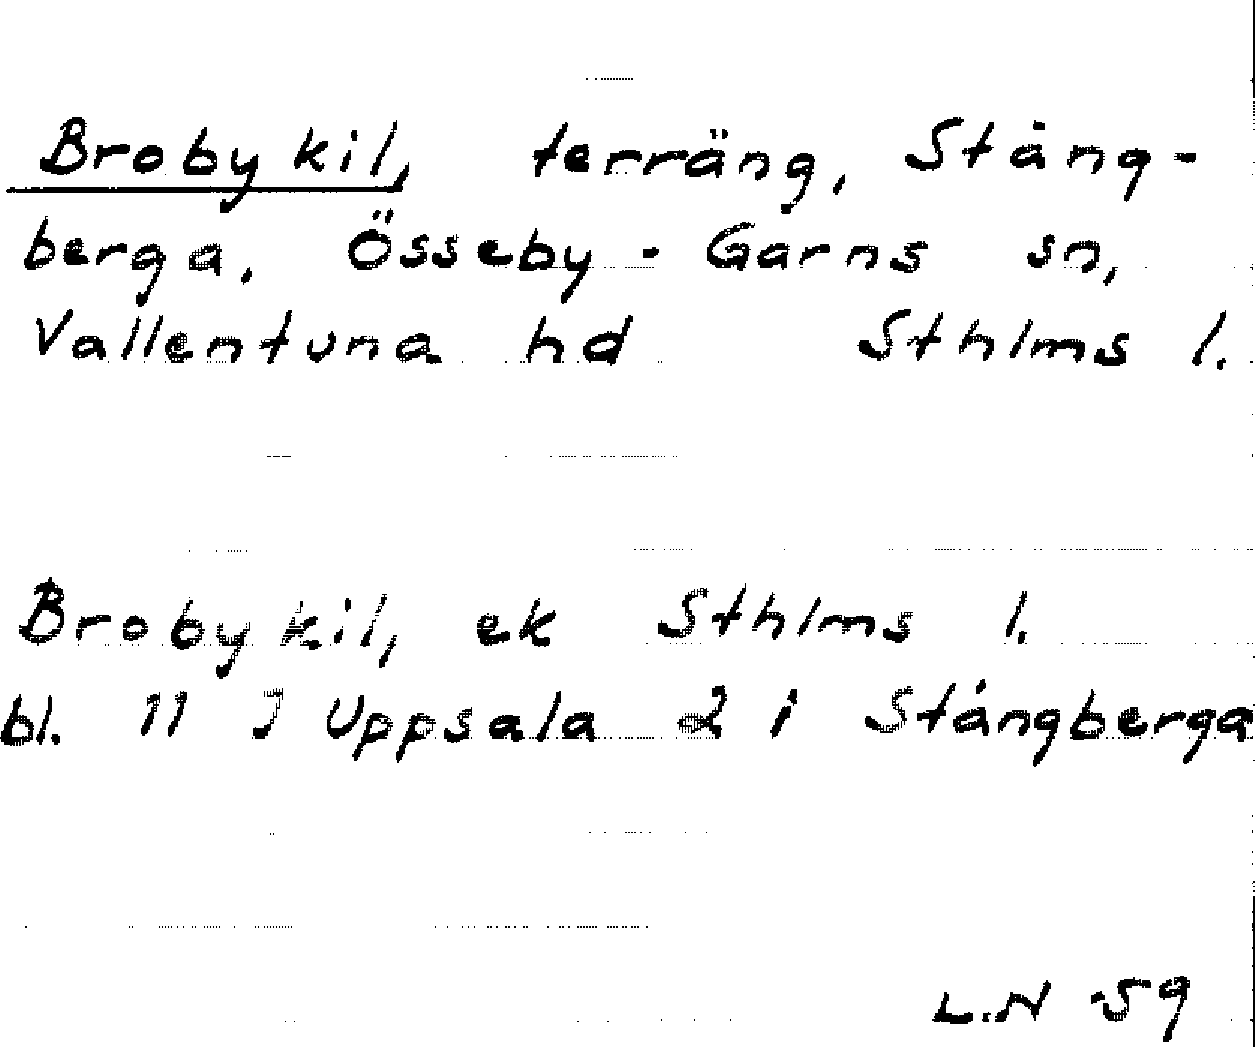 Brobykil, terräng, Stång-
berga, Össeby-Garns sn,
Vallentuna hd Sthlms l.
Brobykil, ek Sthlms l.
bl. 11 J Uppsala 2 i Stångberga
L.N 59